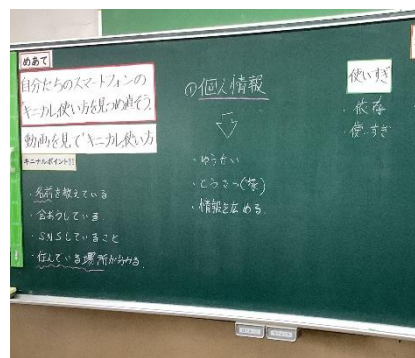 めあて
自分たちのスマートフォンの
"キニナル使い方"を見つめ直そう
動画を見て"キニナル使い方"
キニナルポイント!!
・名前を教えている
・会おうしている
・SNSしていること
・住んでいる場所が分かる
①個人情報
・ゆうかい
・とうさつ
・情報を広める
使いすぎ
・依存
・使いすぎ